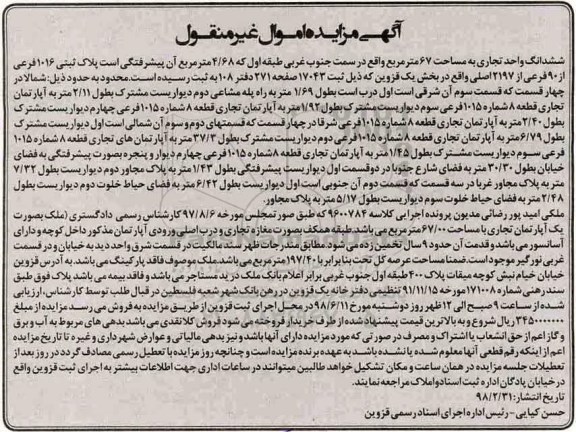 آگهی مزایده اموال غیر منقول
ششدانگ واحد تجاری به مساحت ۶۷ مترمربع واقع در سمت جنوب غربی طبقه اول که ۴/۶۸ مترمربع آن پیشرفتگی است پلاک ثبتی ۱۰۱۶ فرعی
از ۹۰ فرعی از ۲۱۹۷ اصلی واقع در بخش یک قزوین که ذیل ثبت ۱۷۰۴۳ صفحه ۲۷۱ دفتر ۱۰۸ به ثبت رسیده است. محدود به حدود ذیل: شمالا در
چهار قسمت که قسمت سوم آن شرقی است اول درب است بطول ۱/۶۹ متر به راه پله مشاعی دوم دیواریست مشترک بطول ۲/۱۱ متر به آپارتمان
تجاری قطعه ۸ شماره ۱۰۱۵ فرعی سوم دیواریست مشترک بطول ۱/۹۲ متر به آپارتمان تجاری قطعه ۸ شماره ۱۰۱۵ فرعی چهارم دیواریست مشترک
بطول ۲/۴۰ متر به آپارتمان تجاری قطعه ۸ شماره ۱۰۱۵ فرعی شرقا در چهار قسمت که قسمتهای دوم و سوم آن شمالی است اول دیواریست مشترک
بطول ۶/۷۹ متر به آپارتمان تجاری قطعه ۸ شماره ۱۰۱۵ فرعی دوم دیواریست مشترک بطول ۳۷/۳ متر به آپارتمان های تجاری قطعه ۸ شماره ۱۰۱۵
فرعی سوم دیواریست مشترک بطول ۱/۴۵ متر به آپارتمان تجاری قطعه ۸ شماره ۱۰۱۵ فرعی چهارم دیوار و پنجره بصورت پیشرفتگی به فضای
خیابان بطول ۳۰/۳۰ متر به فضای شارع جنوبا در دو قسمت اول دیواریست پیشرفتگی بطول ۱/۴۳ متر به پلاک مجاور دوم دیواریست بطول ۷/۳۲
متر به پلاک مجاور غربا در سه قسمت که قسمت دوم آن جنوبی است اول دیواریست بطول ۶/۴۲ متر به فضای حیاط خلوت دوم دیواریست بطول
۲/۴۸ متر به فضای حیاط خلوت سوم دیواریست بطول ۵/۱۷ متر به پلاک مجاور.
ملکی امید پور رضائی مدیون پرونده اجرایی کلاسه ۹۶۰۰۷۸۴ که طبق صورتمجلس مورخه ۹۷/۸/۶ کارشناس رسمی دادگستری (ملک بصورت
یک آپارتمان تجاری با مساحت ۶۷/۰۰ مترمربع می باشد. طبقه همکف بصورت مغازه تجاری و درب اصلی ورودی آپارتمان مذکور داخل کوچه و دارای
آسانسور می باشد و قدمت آن حدود ۹ سال تخمین زده می شود. مطابق مندرجات ظهر سند مالکیت در قسمت شرق واحد دید به خیابان و در قسمت
غربی نورگیر موجود است. ضمنا مساحت عرصه کل تحت بنا برابر با ۱۹۷/۴۰ مترمربع می باشد. ملک موصوف فاقد پارکینگ می باشد. به آدرس قزوین
خیابان خیام نبش کوچه میقات پلاک ۴۰۰ طبقه اول جنوب غربی برابر اعلام بانک ملک در ید مستاجر می باشد و فاقد بیمه می باشد پلاک فوق طبق
سند رهنی شماره ۱۷۱۰۰۸ مورخه ۹۱/۱۱/۱۵ تنظیمی دفتر خانه یک قزوین در رهن بانک شهر شعبه فلسطین در قبال طلب توسط کارشناس، ارزیابی
شده از ساعت ۹ صبح الی ۱۲ ظهر روز دوشنبه مورخ ۹۸/۶/۱۱ در محل اجرای ثبت قزوین از طریق مزایده به فروش می رسد مزایده از مبلغ
ریال شروع و به بالاترین قیمت پیشنهاد شده از طرف خریدار فروخته می شود فروش کلا نقدی می باشد بدهی های مربوط به آب و برق
و گاز اعم از حق انشعاب یا اشتراک و مصرف در صورتی که مورد مزایده دارای آنها باشد و نیز بدهی مالیاتی و عوارض شهرداری و غیره تا تاریخ مزایده
اعم از اینکه رقم قطعی آنها معلوم شده یا نشده باشد به عهده برنده مزایده است و چنانچه روز مزایده با تعطیل رسمی مصادف گردد در روز بعد از
تعطیلات جلسه مزایده در همان ساعت و مکان تشکیل خواهد طالبین میتوانند در ساعات اداری جهت اطلاعات بیشتر به اجرای ثبت قزوین واقع
در خیابان پادگان اداره ثبت اسناد و املاک مراجعه نمایند.
تاریخ انتشار: ۹۸/۲/۳۱
حسن کیایی - رئیس اداره اجرای اسناد رسمی قزوین